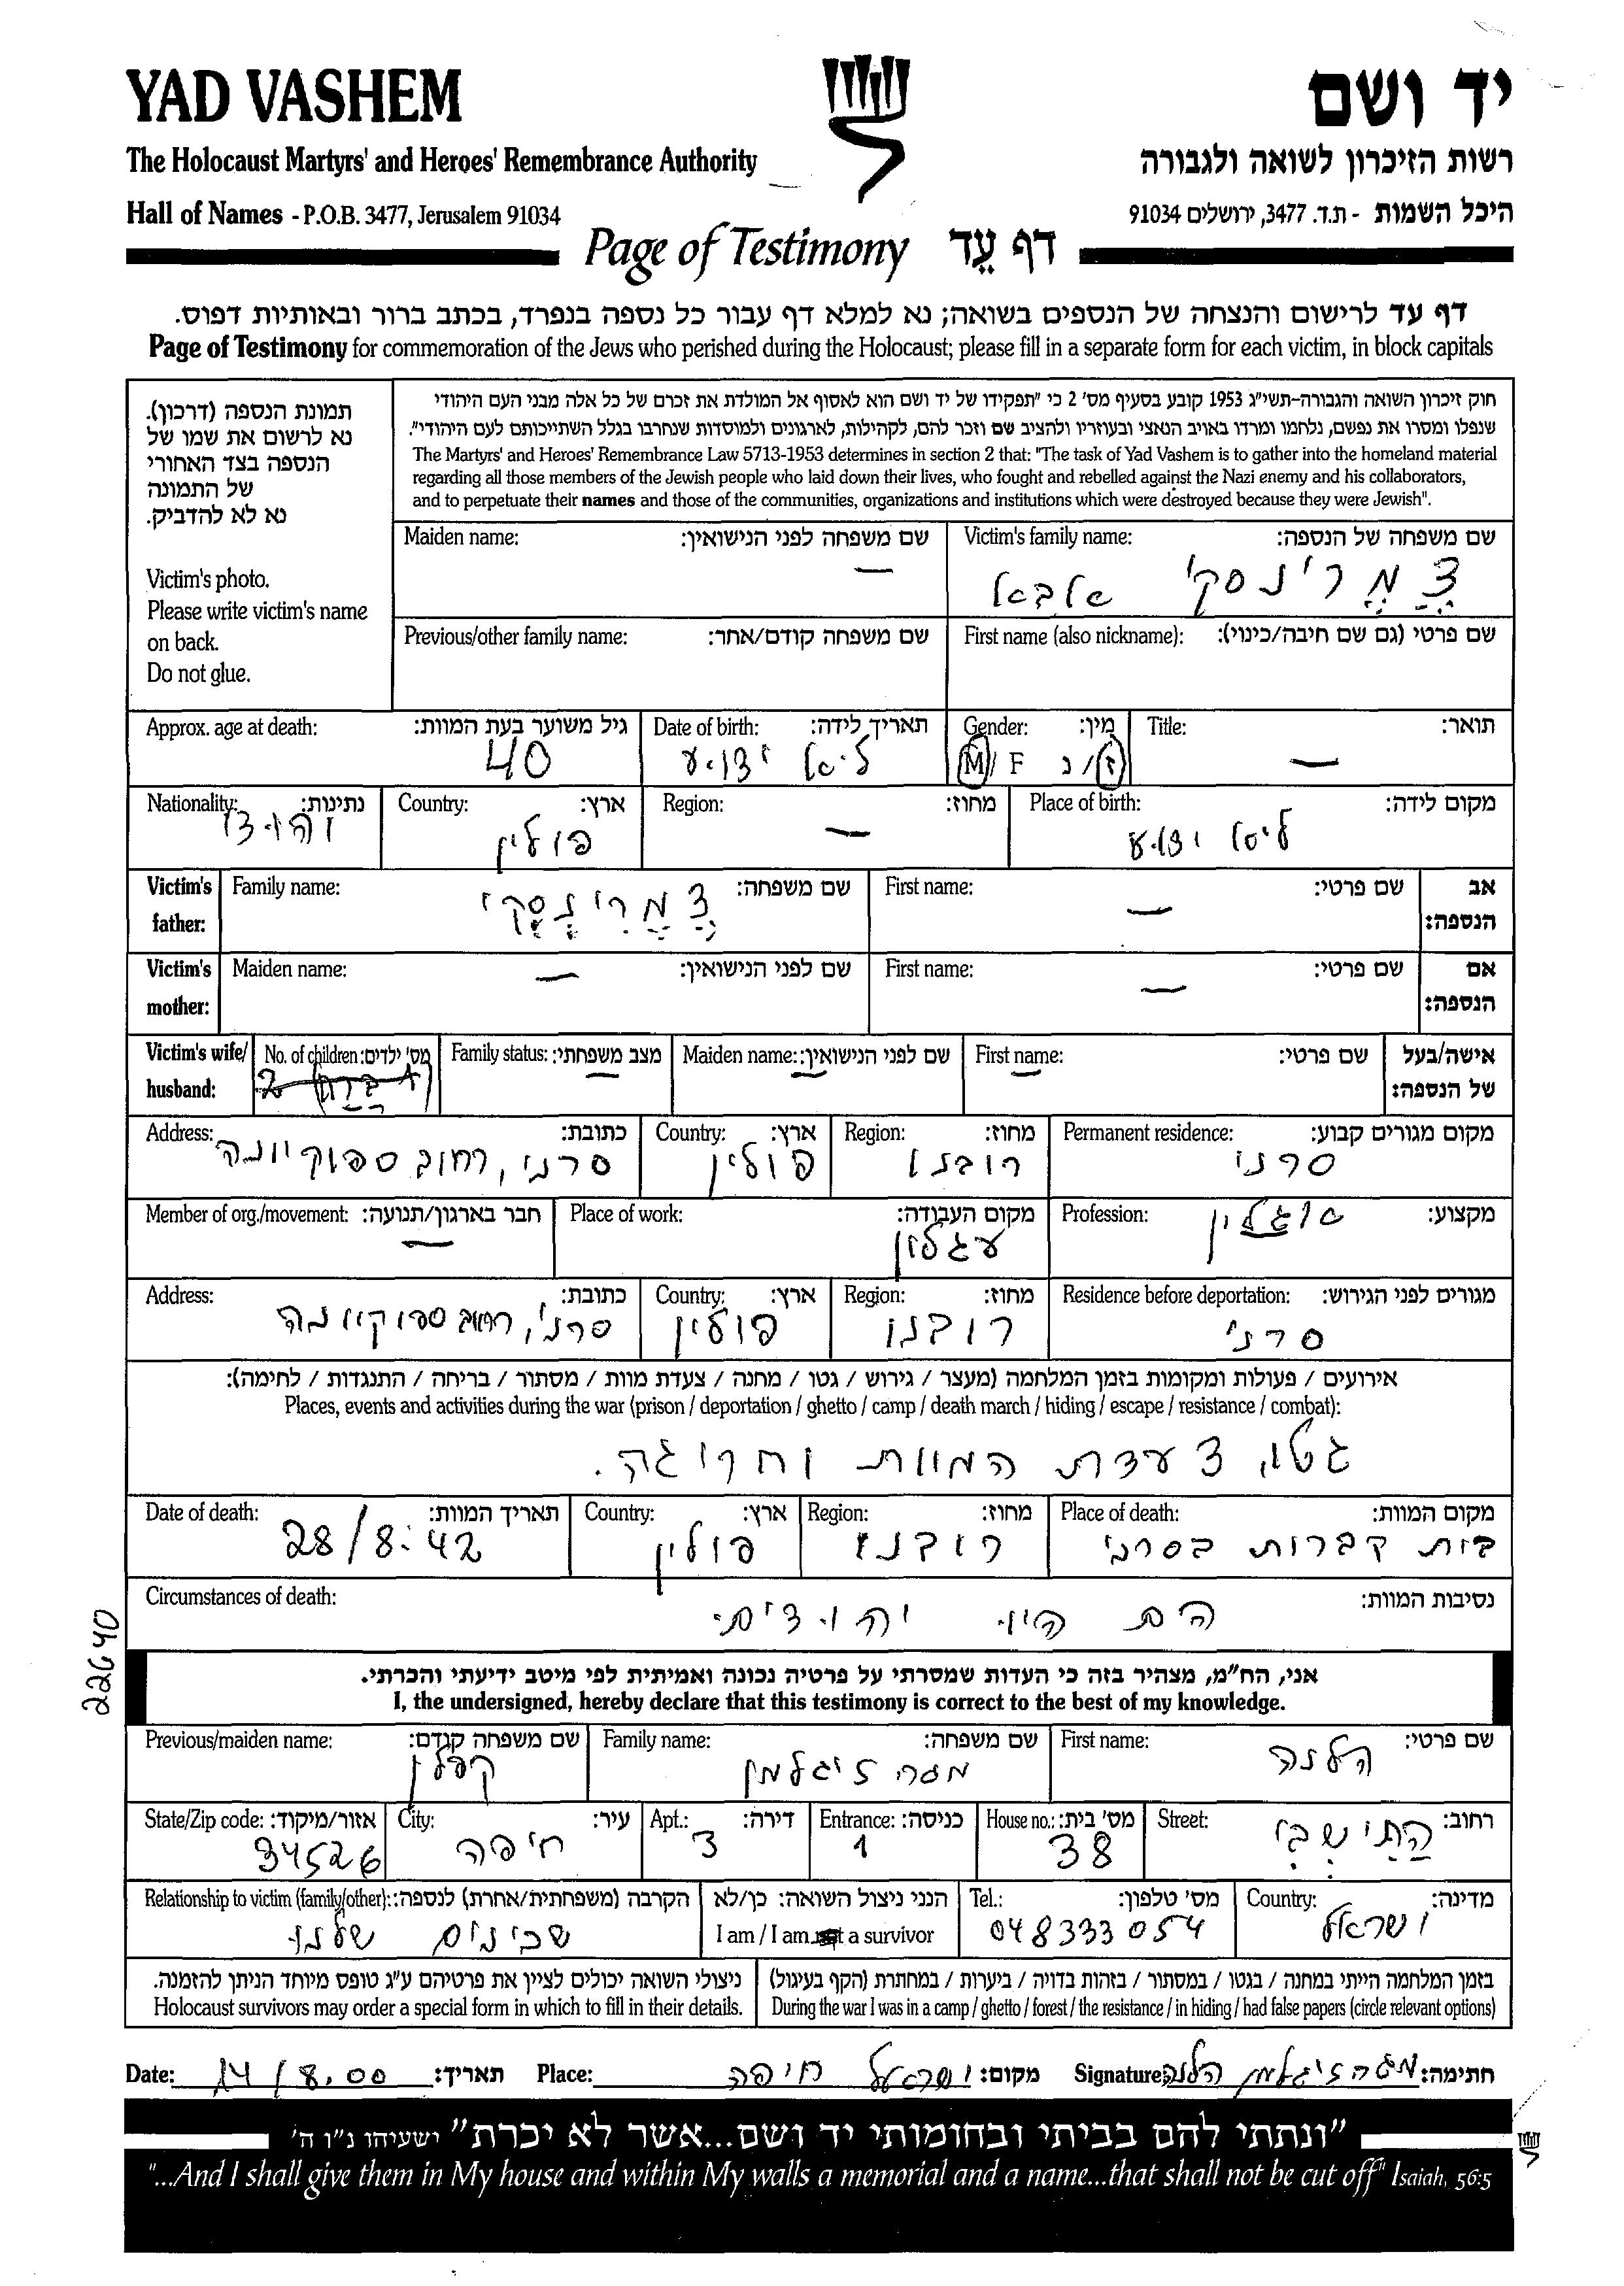 YAD VASHEM
יד ושם
The Holocaust Martyrs' and Heroes' Remembrance Authority
רשות הזיכרון לשואה ולגבורה
Hall of Names - P.O.B. 3477, Jerusalem 91034
היכל השמות - ת.ד. 3477, ירושלים 91034
Page of Testimony דף עֵד
דף עד לרישום והנצחה של הנספים בשואה; נא למלא דף עבור כל נספה בנפרד, בכתב ברור ובאותיות דפוס.
Page of Testimony for commemoration of the Jews who perished during the Holocaust; please fill in a separate form for each victim, in block capitals
תמונת הנספה (דרכון).
נא לרשום את שמו של
הנספה בצד האחורי
של התמונה
נא לא להדביק.
Victim's photo.
Please write victim's name
on back.
Do not glue.
חוק זיכרון השואה והגבורה-תשי"ג 1953 קובע בסעיף מס' 2 כי "תפקידו של יד ושם הוא לאסוף אל המולדת את זכרם של כל אלה מבני העם היהודי
שנפלו ומסרו את נפשם, נלחמו ומרדו באויב הנאצי ובעוזריו ולהציב שם וזכר להם, לקהילות, לארגונים ולמוסדות שנחרבו בגלל השתייכותם לעם היהודי".
The Martyrs' and Heroes' Remembrance Law 5713-1953 determines in section 2 that: "The task of Yad Vashem is to gather into the homeland material
regarding all those members of the Jewish people who laid down their lives, who fought and rebelled against the Nazi enemy and his collaborators,
and to perpetuate their names and those of the communities, organizations and institutions which were destroyed because they were Jewish".
Maiden name: שם משפחה לפני הנישואין: Victim's family name: שם משפחה של הנספה:
— צַמַרינסקי אבא
Previous/other family name: שם משפחה קודם/אחר: First name (also nickname): שם פרטי (גם שם חיבה/כינוי):
Approx. age at death: גיל משוער בעת המוות: Date of birth: תאריך לידה: Gender: מין: Title: תואר:
40 לא ידוע M/ F ז/נ —
Nationality: נתינות: Country: ארץ: Region: מחוז: Place of birth: מקום לידה:
יהודי פולין — לא ידוע
Victim's father: Family name: שם משפחה: First name: שם פרטי: אב הנספה:
צַמַרינסקי —
Victim's mother: Maiden name: שם לפני הנישואין: First name: שם פרטי: אם הנספה:
— —
Victim's wife/ husband: No. of children: מס' ילדים: Family status: מצב משפחתי: Maiden name: שם לפני הנישואין: First name: שם פרטי: אישה/בעל של הנספה:
— — —
Address: כתובת: Country: ארץ: Region: מחוז: Permanent residence: מקום מגורים קבוע:
סרני, רחוב פולין רובנו סרני
Member of org./movement: חבר בארגון/תנועה: Place of work: מקום העבודה: Profession: מקצוע:
— עגלון
Address: כתובת: Country: ארץ: Region: מחוז: Residence before deportation: מגורים לפני הגירוש:
סרני, רחוב פולין רובנו סרני
אירועים / פעולות ומקומות בזמן המלחמה (מעצר / גירוש / גטו / מחנה / צעדת מוות / מסתור / בריחה / התנגדות / לחימה):
Places, events and activities during the war (prison / deportation / ghetto / camp / death march / hiding / escape / resistance / combat):
גטו, צעדת המוות והריגה.
Date of death: תאריך המוות: Country: ארץ: Region: מחוז: Place of death: מקום המוות:
28/8.42 פולין רובנו בית קברות בסרני
Circumstances of death: נסיבות המוות:
הם היו יהודים
22640
אני, הח"מ, מצהיר בזה כי העדות שמסרתי על פרטיה נכונה ואמיתית לפי מיטב ידיעתי והכרתי.
I, the undersigned, hereby declare that this testimony is correct to the best of my knowledge.
Previous/maiden name: שם משפחה קודם: Family name: שם משפחה: First name: שם פרטי:
קפלן זיגלמן הלנה
State/Zip code: אזור/מיקוד: City: עיר: Apt.: דירה: Entrance: כניסה: House no.: מס' בית: Street: רחוב:
34526 חיפה 3 1 38 הַתִישְבִי
Relationship to victim (family/other): הקרבה (משפחתית/אחרת) לנספה: הנני ניצול השואה: כן/לא Tel.: מס' טלפון: Country: מדינה:
שכינים שלנו I am / I am not a survivor 048333054 ישראל
ניצולי השואה יכולים לציין את פרטיהם ע"ג טופס מיוחד הניתן להזמנה. בזמן המלחמה הייתי במחנה / בגטו / במסתור / בזהות בדויה / ביערות / במחתרת (הקף בעיגול)
Holocaust survivors may order a special form in which to fill in their details. During the war I was in a camp / ghetto / forest / the resistance / in hiding / had false papers (circle relevant options)
Date: 14/8.00 תאריך: Place: ישראל חיפה מקום: Signature: זיגלמן הלנה חתימה:
"ונתתי להם בביתי ובחומותי יד ושם...אשר לא יכרת" ישעיהו נ"ו ה'
"...And I shall give them in My house and within My walls a memorial and a name...that shall not be cut off" Isaiah, 56:5